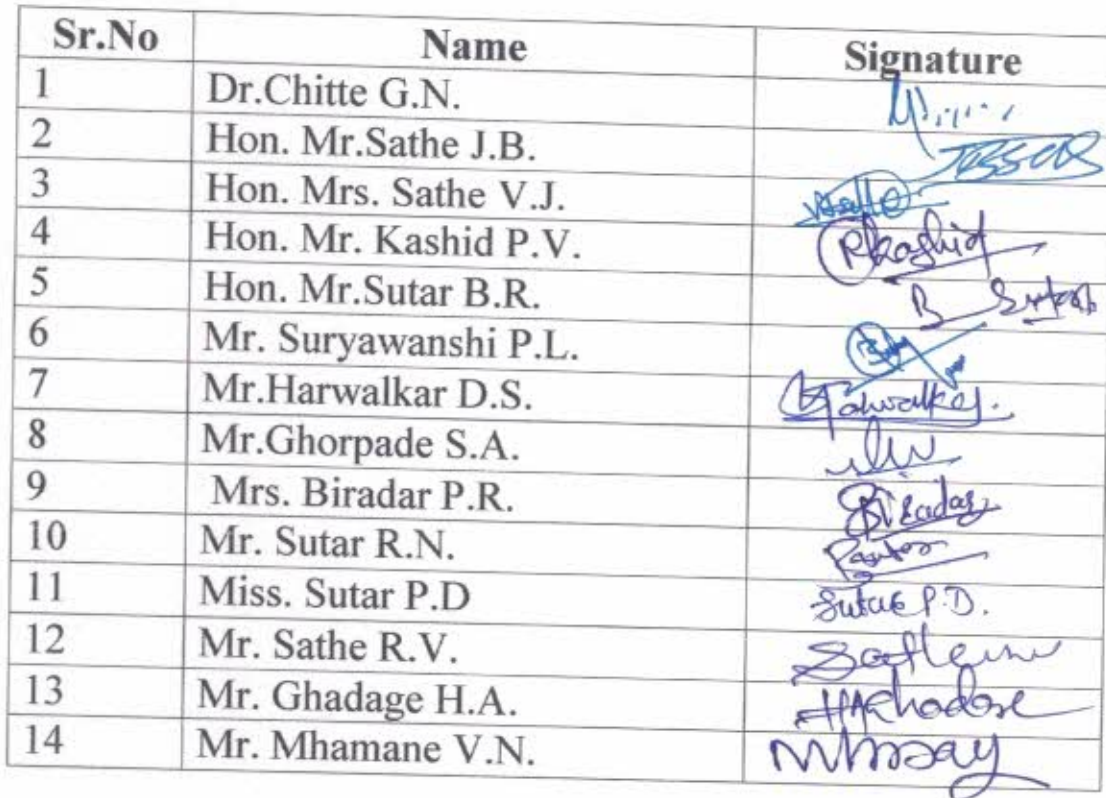 Sr.No Name Signature
1 Dr.Chitte G.N.
2 Hon. Mr.Sathe J.B.
3 Hon. Mrs. Sathe V.J.
4 Hon. Mr. Kashid P.V. PKashid
5 Hon. Mr.Sutar B.R. B Sutar
6 Mr. Suryawanshi P.L.
7 Mr.Harwalkar D.S.
8 Mr.Ghorpade S.A.
9 Mrs. Biradar P.R. Biradar
10 Mr. Sutar R.N.
11 Miss. Sutar P.D Sutar P.D.
12 Mr. Sathe R.V.
13 Mr. Ghadage H.A.
14 Mr. Mhamane V.N.